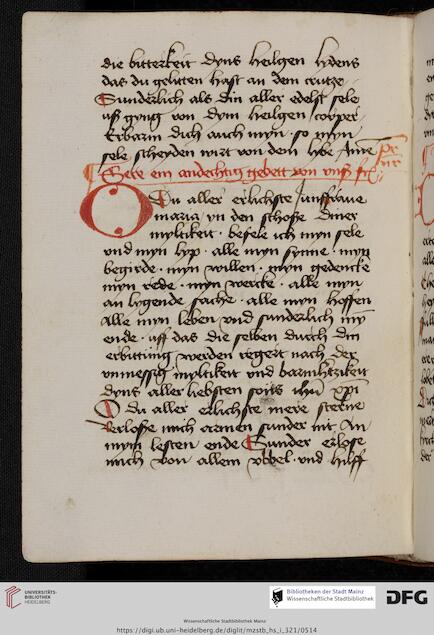 die bitterkeit dyns heilgen lydens
das du gelitten hast an dem crutze
Sunderlich als din aller edelst sele
uß gyng von dym heilgen corper
Erbarm dich auch myn so myn
sele scheyden wirt von dem libe Amen
ein andechtig gebett von
O Du aller erlichste junffrauwe
maria yn den schoße diner
myltikeit befele ich myn sele
und myn lyp · alle myn synne · myn
begirde · myn willen · myn gedencke
myn rede · myn wercke · alle myn
an lygende sache · alle myn hoffen
Alle myn leben und sunderlich myn
ende · uff das die selben durch din
erbittung werden regert nach der
unmessig myltikeit und barmhertzikeit
dyns aller liebsten sons ihu xpi
O du aller erlichste mere sterne
verlosse mich armen sunder nit An
mym lesten ende Sunder erlose
mich von allem ubbel · und hilff
UNIVERSITÄTS-
BIBLIOTHEK
HEIDELBERG
Bibliotheken der Stadt Mainz
Wissenschaftliche Stadtbibliothek
DFG
Wissenschaftliche Stadtbibliothek Mainz
https://digi.ub.uni-heidelberg.de/diglit/mzstb_hs_i_321/0514